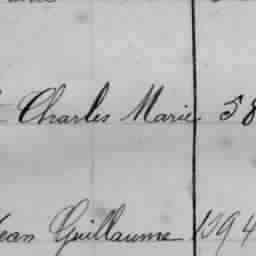 Charles Marie 58
Jean Guillaume 1094